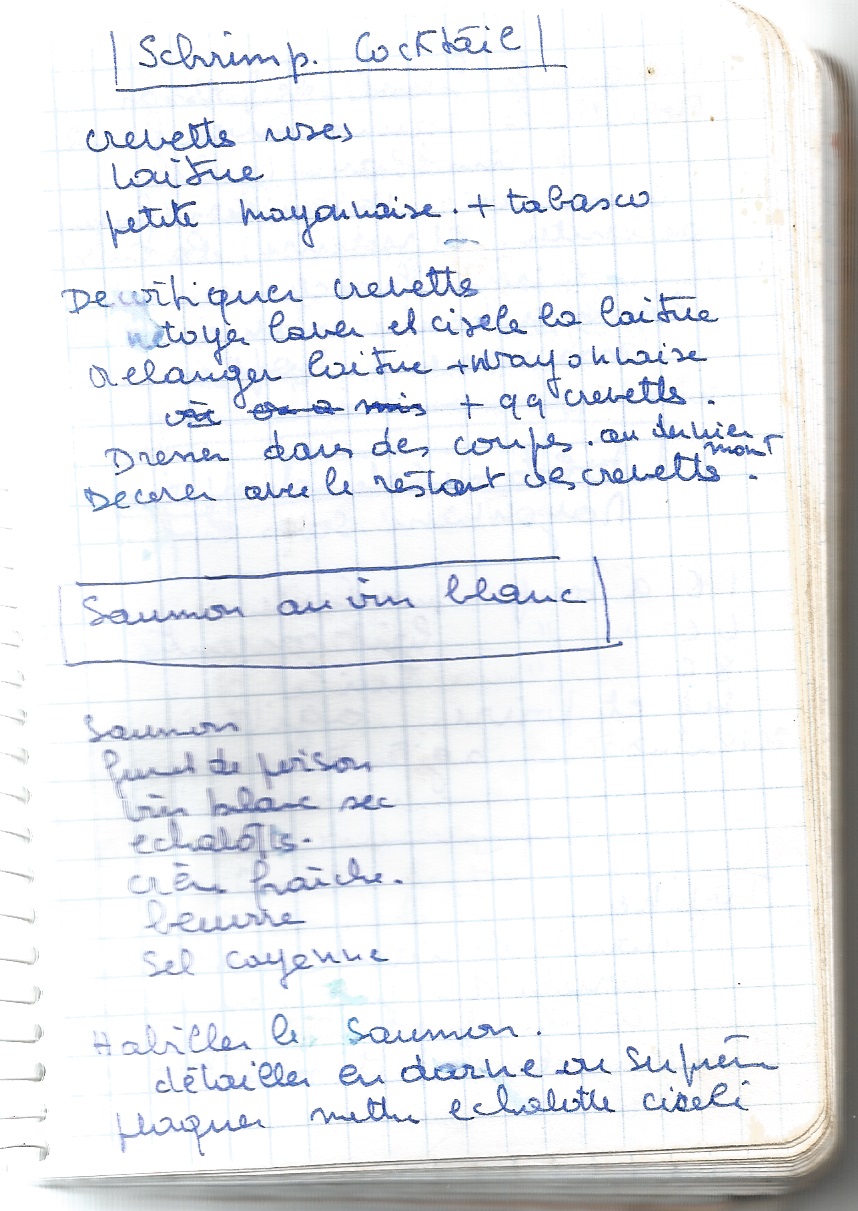 Schrimp. Cocktail
crevettes roses
laitue
petite mayonnaise. + tabasco
Decortiquer crevettes
netoyer laver et cisele la laitue
Melanger laitue + mayonnaise
+ qq crevettes.
Dresser dans des coupes. au dernier momt
Decorer avec le restant des crevettes.
Saumon au vin blanc
Saumon
fumet de poisson
vin blanc sec
echalottes.
crèm fraîche.
beurre
Sel cayenne
Habiller le Saumon.
détailler en darne ou suprêm
plaquer mettre echalotte ciseli